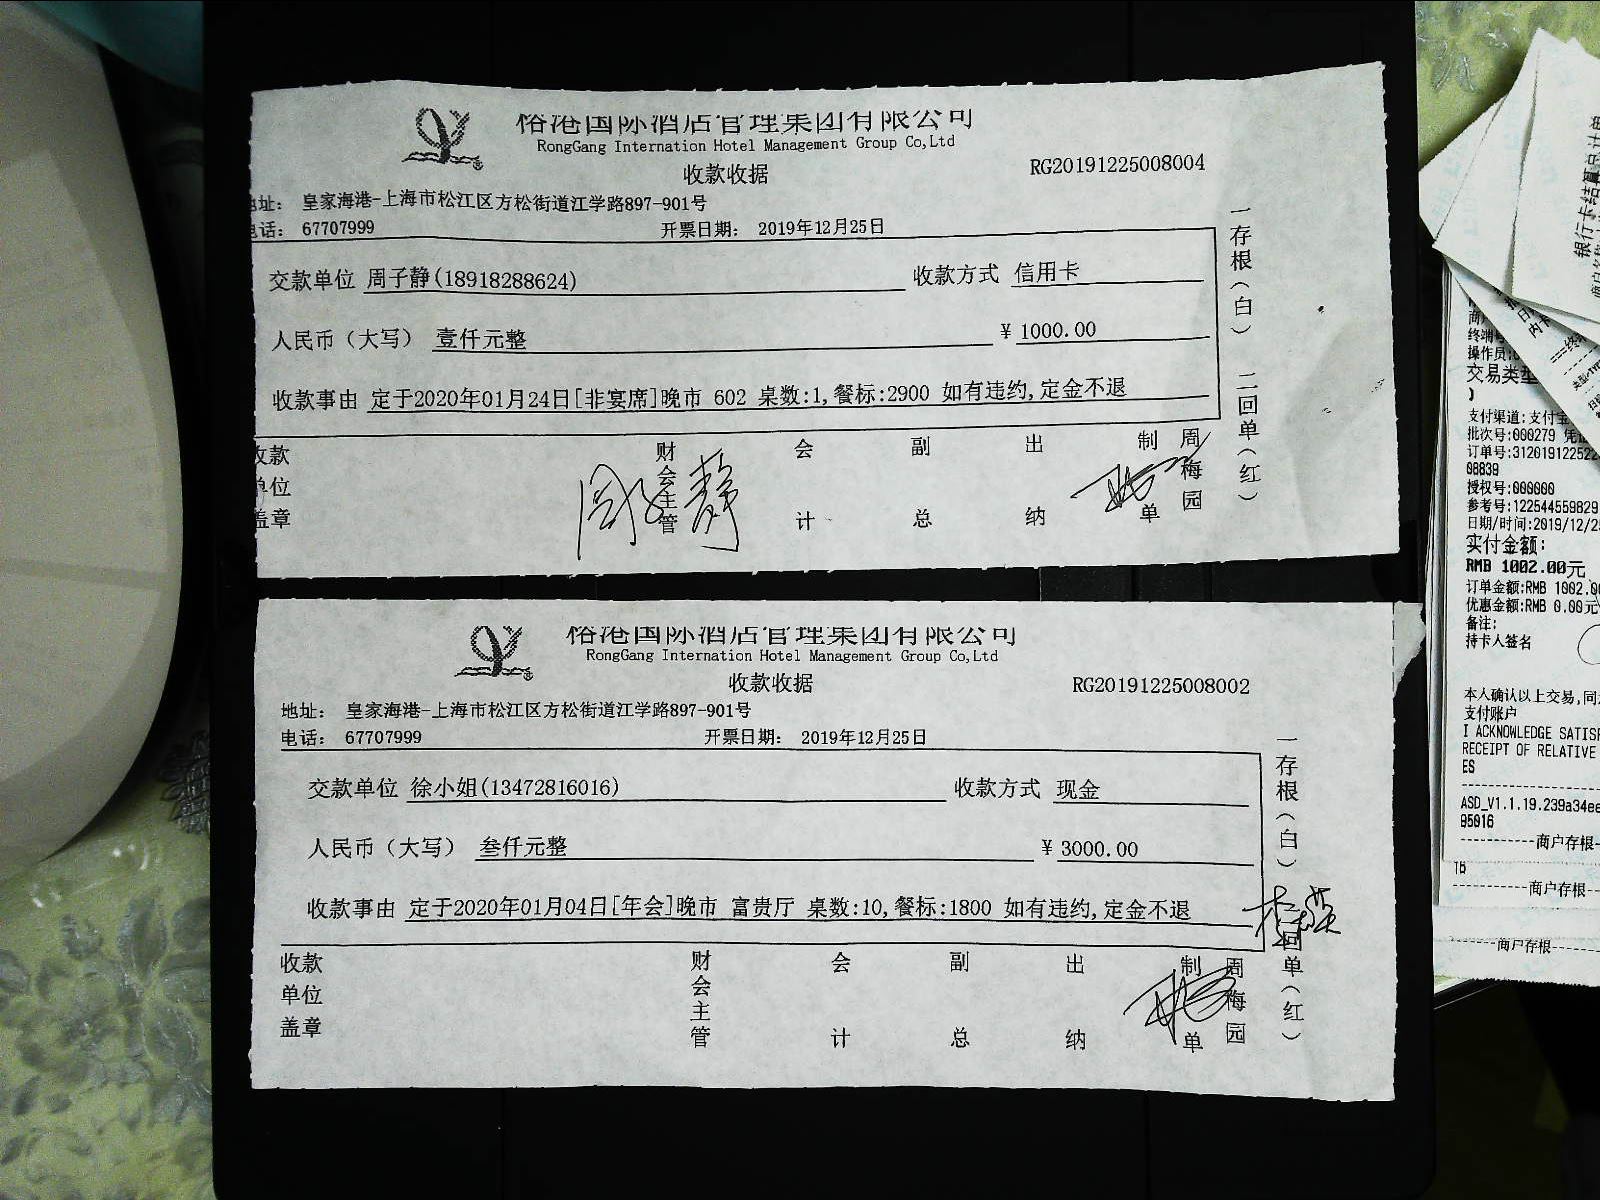 裕港国际酒店管理集团有限公司
RongGang Internation Hotel Management Group Co,Ltd
收款收据
RG20191225008004
地址： 皇家海港-上海市松江区方松街道江学路897-901号
电话： 67707999
开票日期： 2019年12月25日
交款单位 周子静(18918288624)
收款方式 信用卡
人民币（大写） 壹仟元整
¥ 1000.00
收款事由 定于2020年01月24日[非宴席]晚市 602 桌数:1,餐标:2900 如有违约,定金不退
一存根(白) 二回单(红)
收款单位盖章
财会主管
周子静
会计
副总
出纳
制单
周梅园
裕港国际酒店管理集团有限公司
RongGang Internation Hotel Management Group Co,Ltd
收款收据
RG20191225008002
地址： 皇家海港-上海市松江区方松街道江学路897-901号
电话： 67707999
开票日期： 2019年12月25日
交款单位 徐小姐(13472816016)
收款方式 现金
人民币（大写） 叁仟元整
¥ 3000.00
收款事由 定于2020年01月04日[年会]晚市 富贵厅 桌数:10,餐标:1800 如有违约,定金不退
一存根(白) 二回单(红)
收款单位盖章
财会主管
会计
副总
出纳
制单
周梅园
银行卡结算总计单
终端号
操作员:
交易类型
支付渠道:支付宝
批次号:000279 凭
订单号:312019122522
08839
授权号:000000
参考号:122544559829
日期/时间:2019/12/25
实付金额:
RMB 1002.00元
订单金额:RMB 1002.00
优惠金额:RMB 0.00元
备注:
持卡人签名
本人确认以上交易,同
支付账户
I ACKNOWLEDGE SATISF
RECEIPT OF RELATIVE
ES
ASD_V1.1.19.239a34ee
95016
商户存根
商户存根
商户存根